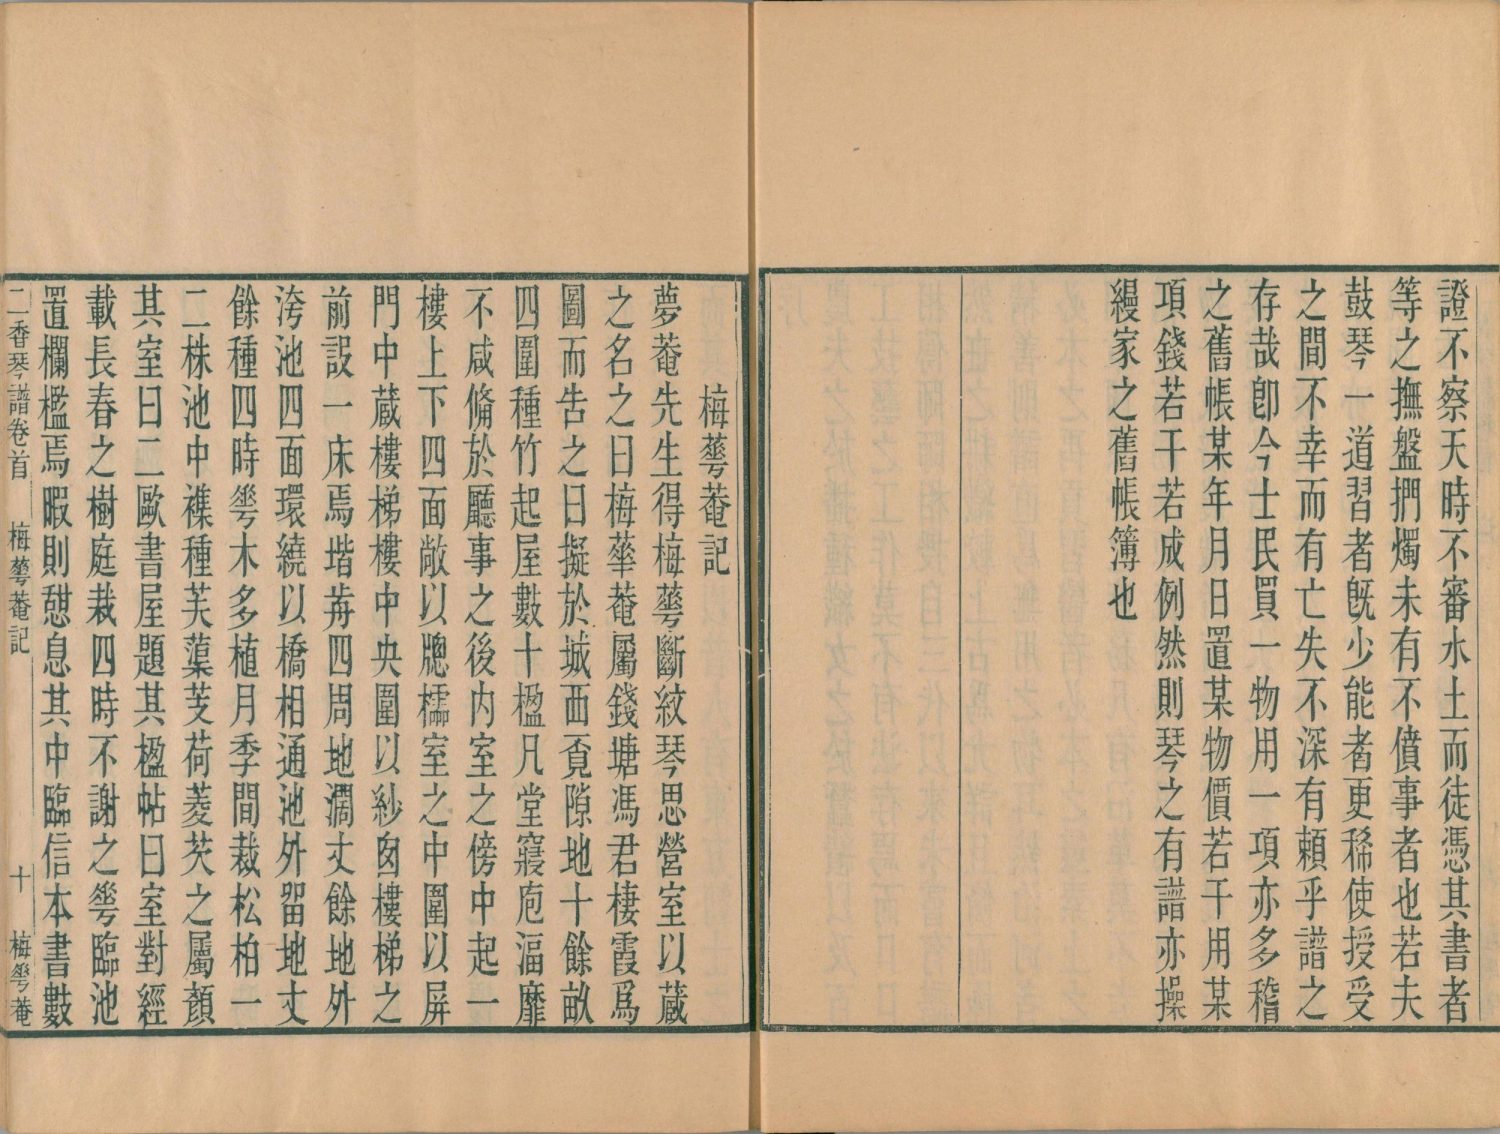 證不察天時不審水土而徒憑其書者
等之撫盤捫燭未有不僨事者也若夫
鼓琴一道習者旣少能者更稀使授受
之間不幸而有亡失不深有賴乎譜之
存哉卽今士民買一物用一項亦多稽
之舊帳某年月日置某物價若干用某
項錢若干若成例然則琴之有譜亦操
縵家之舊帳簿也
梅蕚菴記
夢菴先生得梅蕚斷紋琴思營室以蔵
之名之曰梅華菴屬錢塘馮君棲霞爲
圖而吿之曰擬於城西覔隙地十餘畝
四圍種竹起屋數十楹凡堂寢庖湢靡
不咸僃於廳事之後內室之傍中起一
樓上下四面敞以牎櫺室之中圍以屏
門中蔵樓梯樓中央圍以紗囪樓梯之
前設一床焉堦歬四周地濶丈餘地外
洿池四面環繞以橋相通池外畱地丈
餘種四時蕚木多植月季間栽松柏一
二株池中襍種芙蕖芰荷菱芡之屬顏
其室曰二歐書屋題其楹帖曰室對經
載長春之樹庭栽四時不謝之蕚臨池
置欄檻焉暇則憇息其中臨信本書數
二香琴譜卷首 梅蕚菴記 十 梅蕚菴